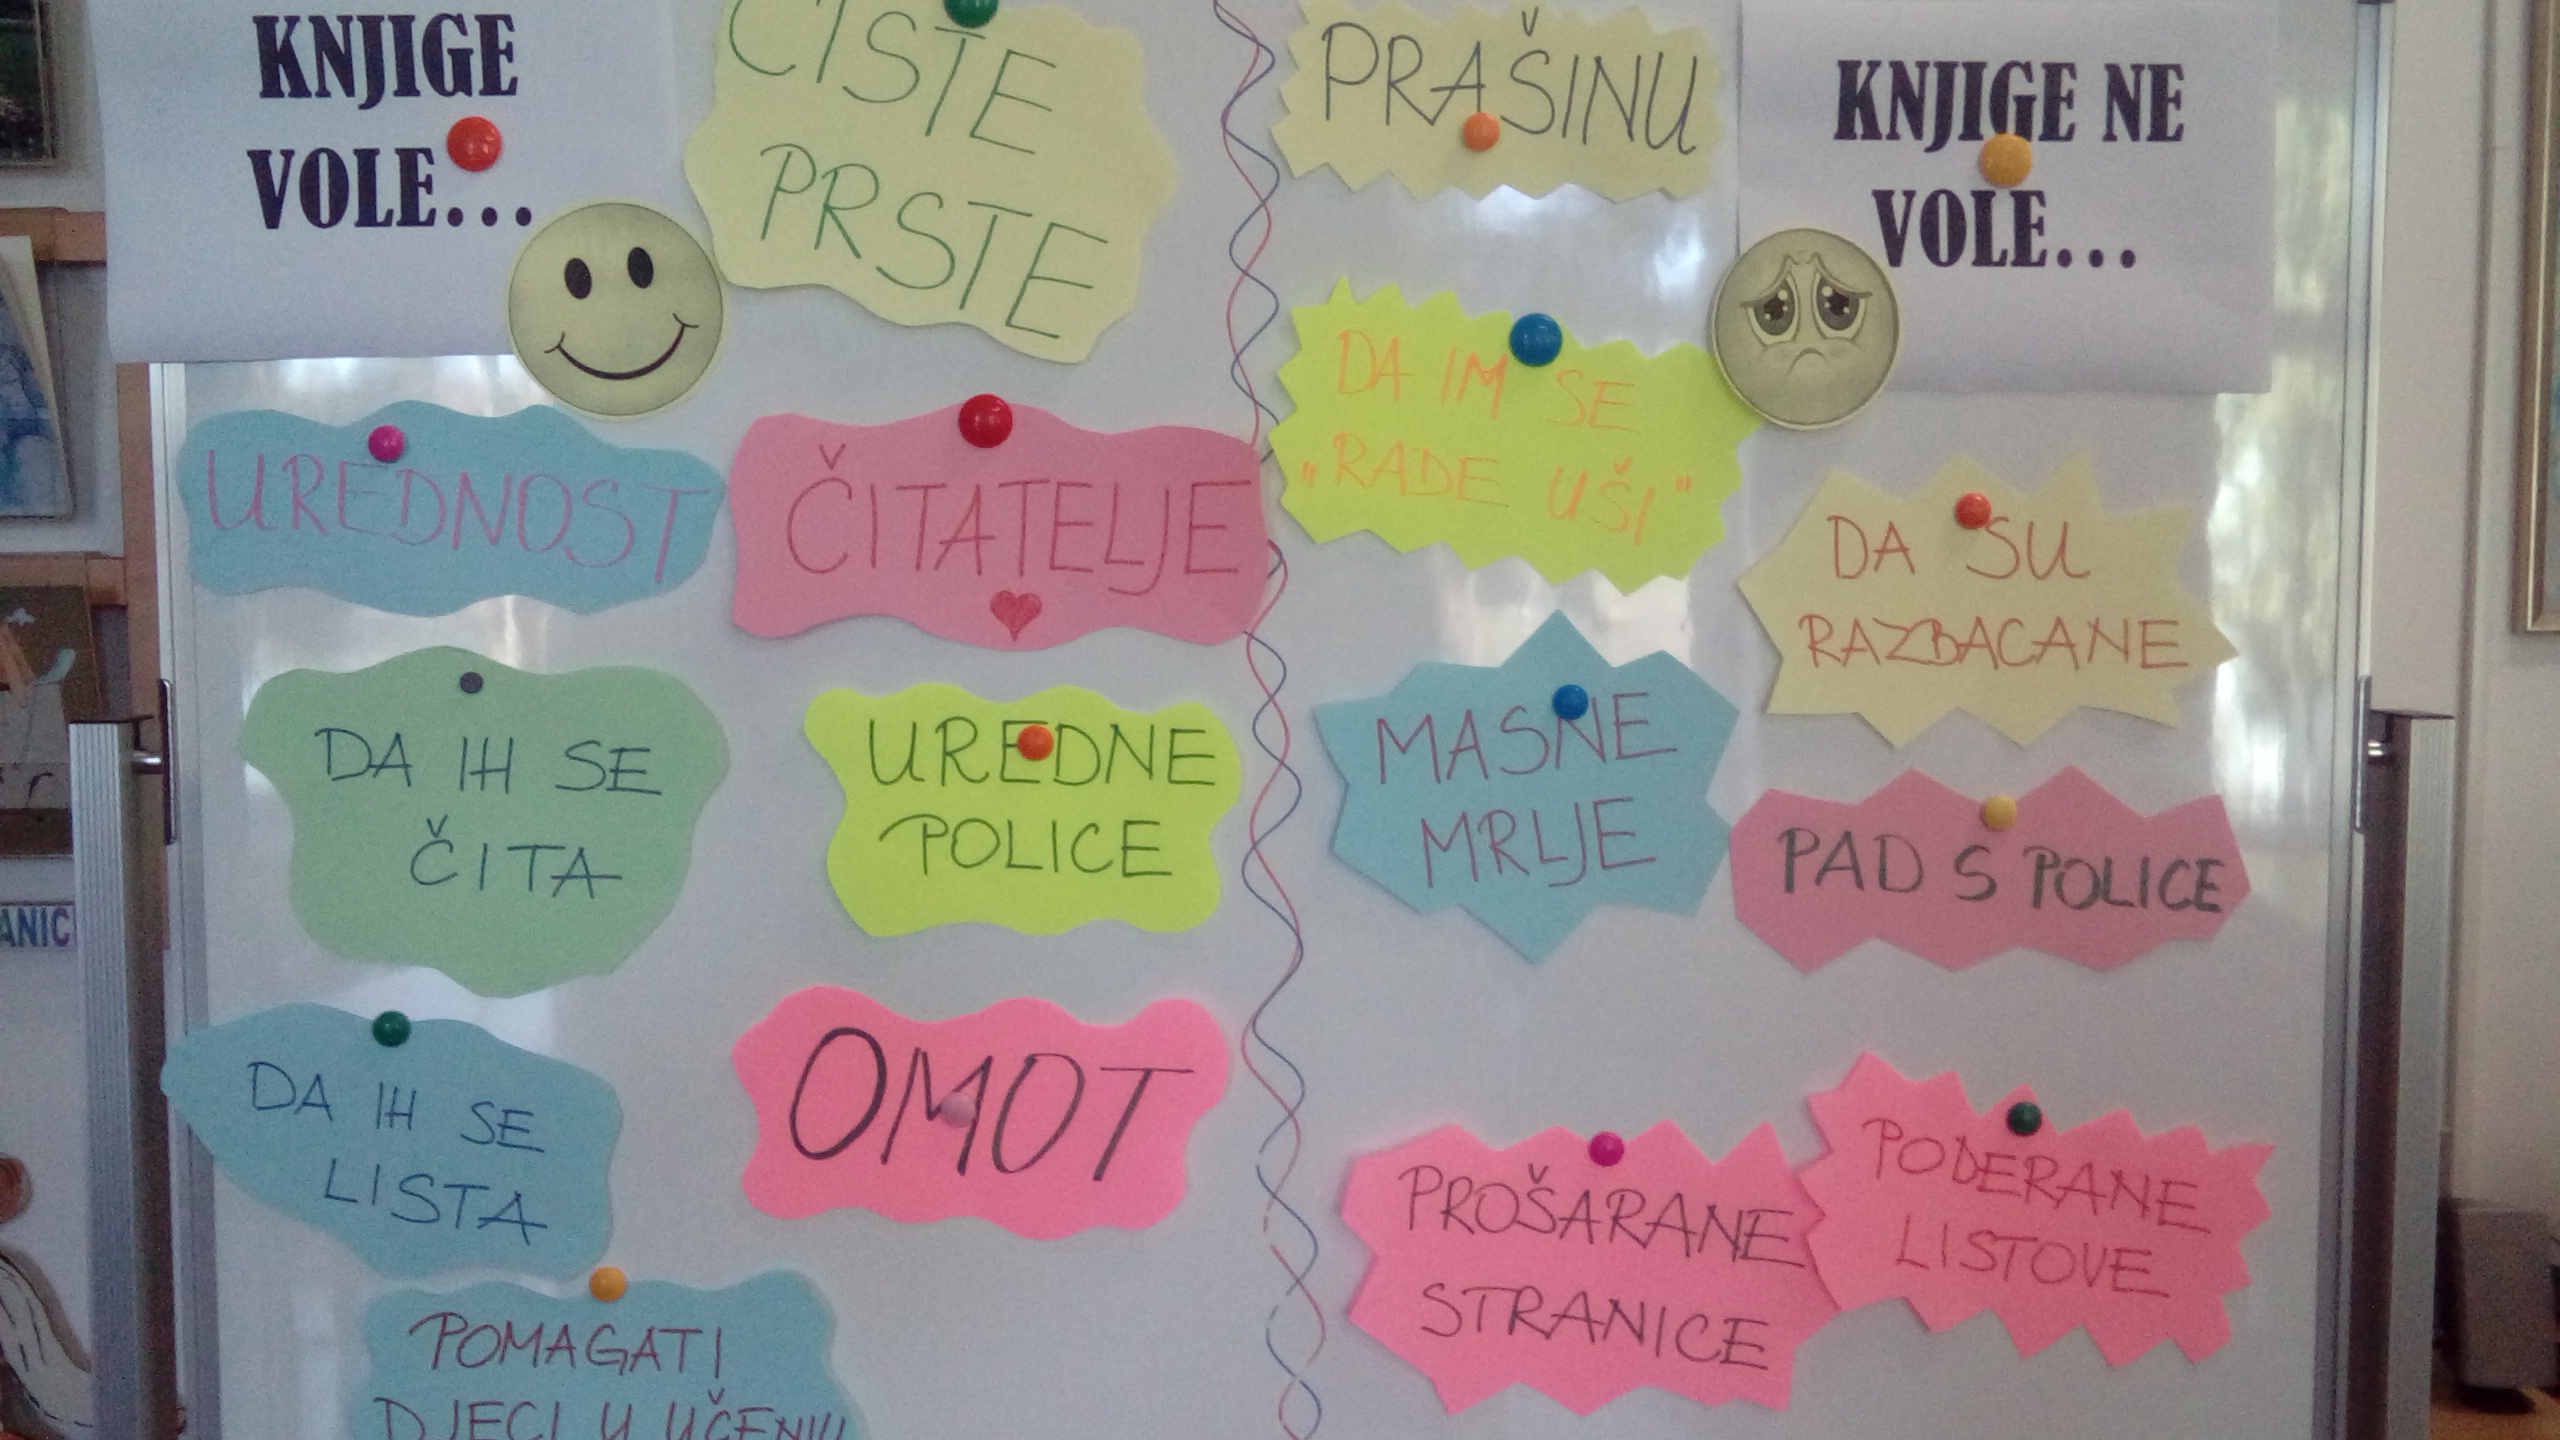 KNJIGE
VOLE...
ČISTE
PRSTE
UREDNOST
ČITATELJE
DA IH SE
ČITA
UREDNE
POLICE
DA IH SE
LISTA
OMOT
POMAGATI
DJECI U UČENJU
PRAŠINU
KNJIGE NE
VOLE...
DA IM SE
„RADE UŠI"
DA SU
RAZBACANE
MASNE
MRLJE
PAD S POLICE
PROŠARANE
STRANICE
PODERANE
LISTOVE
ANIC